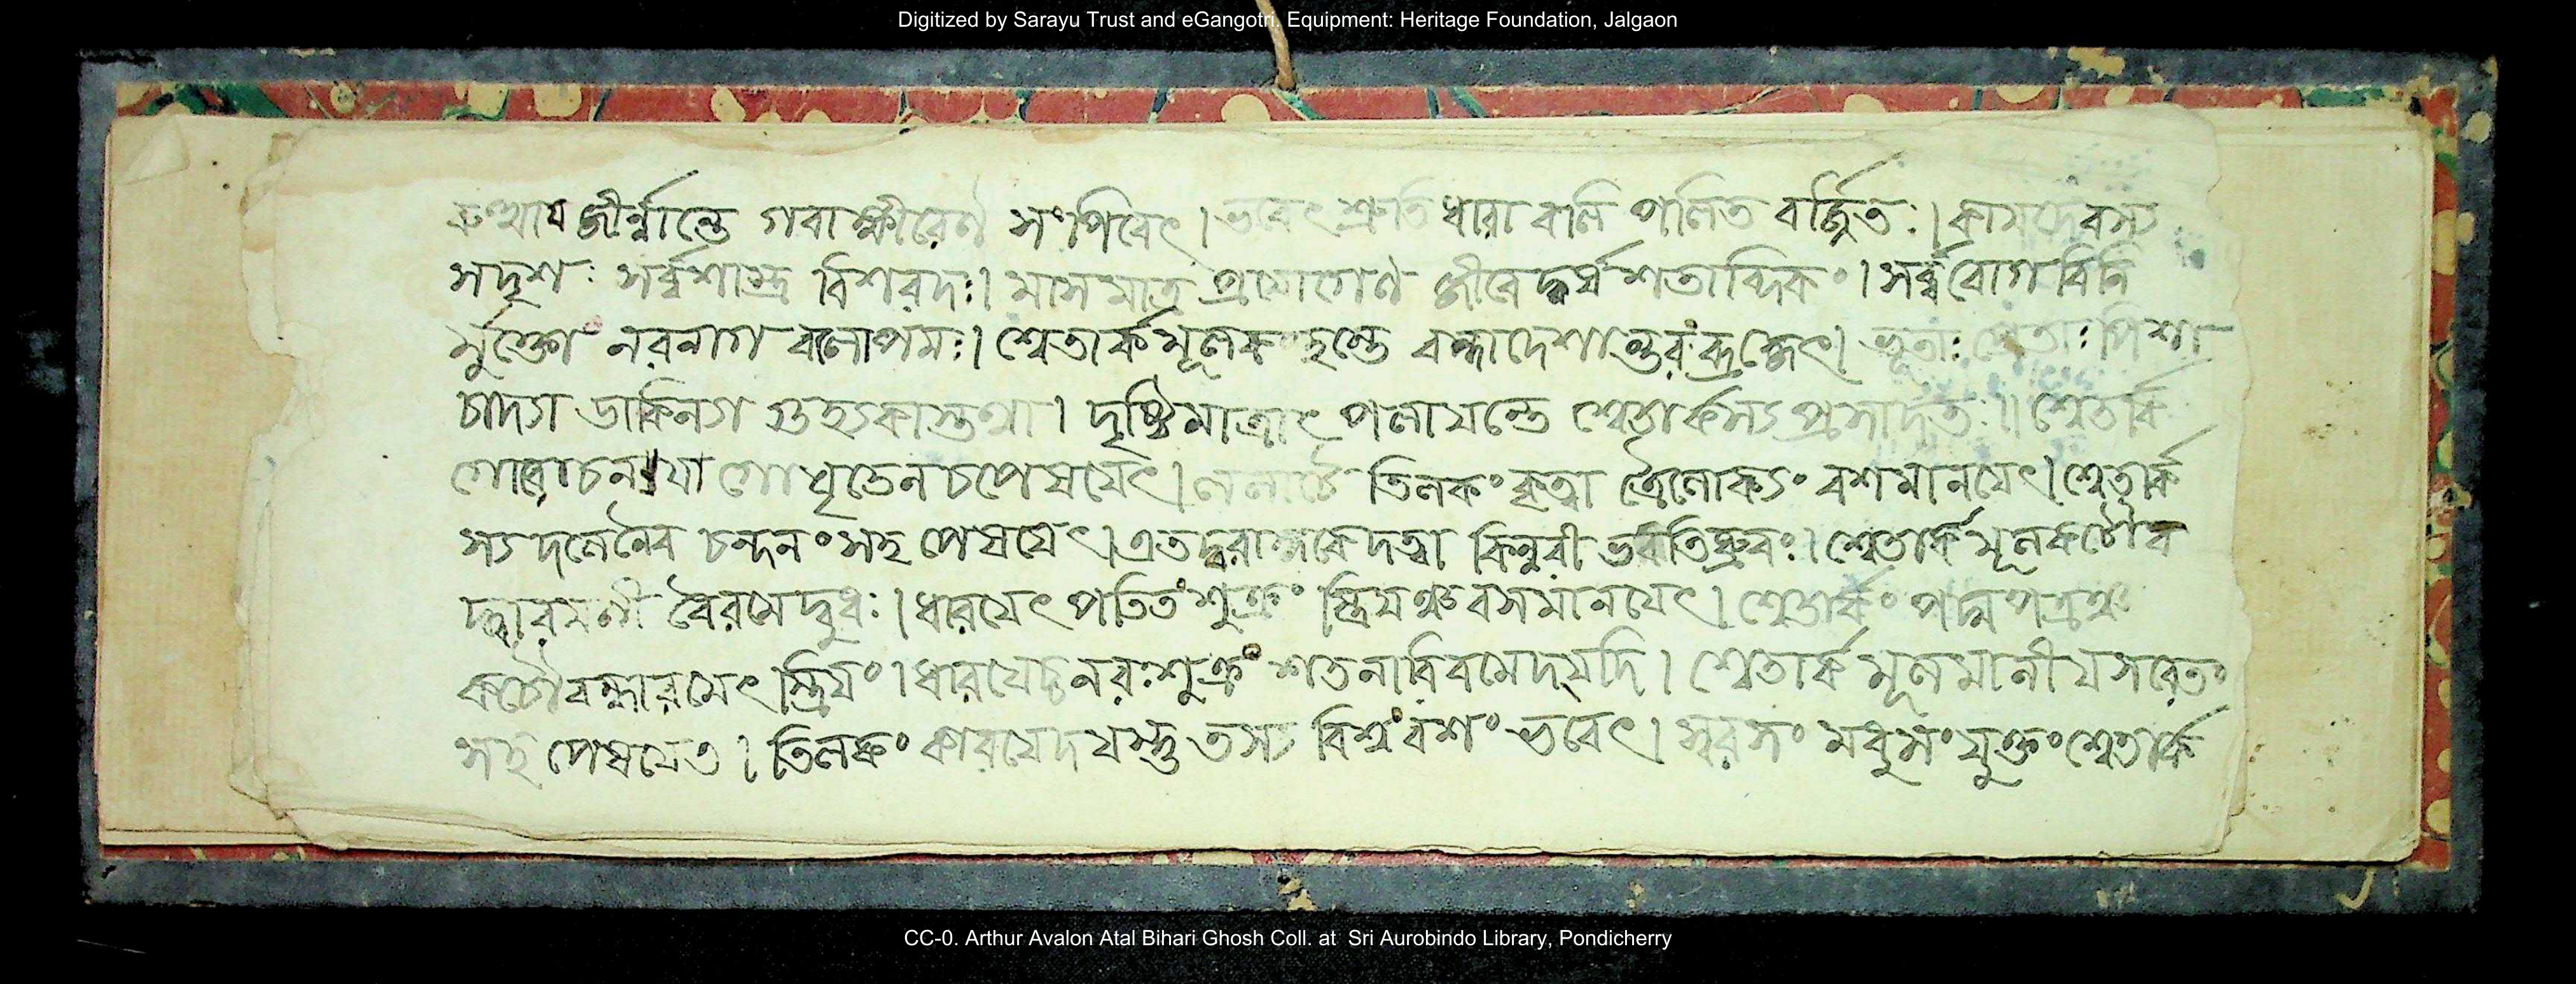 Digitized by Sarayu Trust and eGangotri. Equipment: Heritage Foundation, Jalgaon
জীর্ন্নান্তে গবাক্ষীরেণ সংপিবেৎ। ভবেৎ শ্রুতি ধারা বলি পলিত বর্জ্জিতঃ। কামদেবস্য
সদৃশঃ সর্ব্বশাস্ত্র বিশরদঃ। মাস মাত্র প্রযোগেণ জীবেদ্বর্ষ শতাব্দিকং। সর্ব্বরোগ বিনি
র্মুক্তো নরনাগ বলোপমঃ। শ্বেতার্কমূলকং হস্তে বন্ধাদেশান্তরং ব্রজেৎ। ভূতাঃ প্রেতাঃ পিশা
চাদ্যা ডাকিন্যা গুহ্যকাস্তথা। দৃষ্টিমাত্রাৎ পলাযন্তে শ্বেতার্কস্য প্রসাদতঃ॥ শ্বেতার্ক
গোরোচনাযা গোঘৃতেন চ পেষযেৎ। ললাটে তিলকং কৃত্বা ত্রৈলোক্যং বশমানযেৎ। শ্বেতার্ক
স্য দলেনৈব চন্দনং সহ পেষযেৎ। দত্বা কিন্নরী ভবতি ধ্রুবং। শ্বেতার্ক মূলকটৌব
দ্ধারমণী বৈরমেদ্বুধঃ। ধারযেৎ পতিতং শুক্রং স্ত্রিযঞ্চ বসমানযেৎ। শ্বেতার্কং পদ্মপত্রঞ্চ
কটৌবদ্ধারমেৎ স্ত্রিযং। ধারযেচ্চ নরঃ শুক্রং শতনারি বমেদ্যদি। শ্বেতার্ক মূলমানীয সরেতং
সহ পেষযেত। তিলকং কারযেদ যস্তু তস্য বিশ্বং বশং ভবেৎ। স্বরসং মধুসংযুক্তং শ্বেতার্ক
CC-0. Arthur Avalon Atal Bihari Ghosh Coll. at Sri Aurobindo Library, Pondicherry